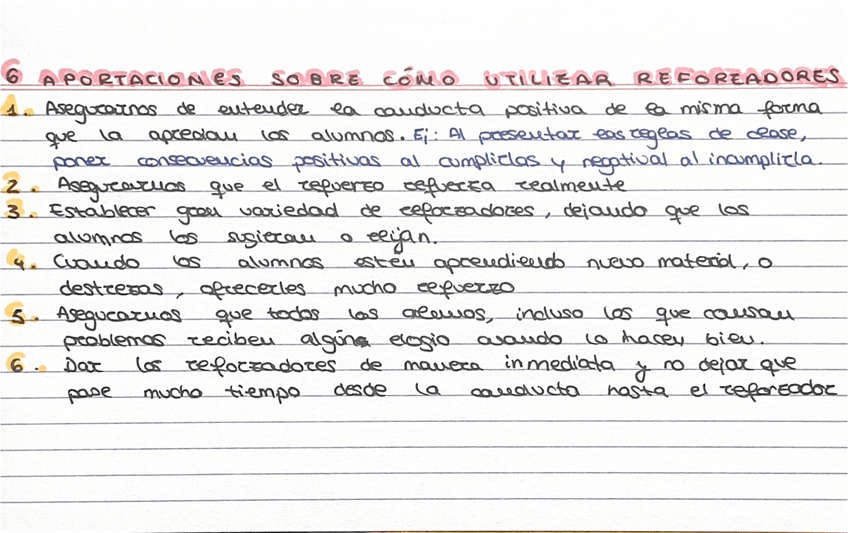 6 APORTACIONES SOBRE CÓMO UTILIZAR REFORZADORES
1. Asegurarnos de entender la conducta positiva de la misma forma
que la aprecian los alumnos. Ej: Al presentar las reglas de clase,
poner consecuencias positivas al cumplirlas y negatival al incumplirla.
2. Asegurarnos que el refuerzo refuerza realmente
3. Establecer gran variedad de reforzadores, dejando que los
alumnos los sugieran o elijan.
4. Cuando los alumnos estén aprendiendo nuevo material, o
destrezas, ofrecerles mucho refuerzo
5. Asegurarnos que todos los alumnos, incluso los que causan
problemas reciben algún elogio cuando lo hacen bien.
6. Dar los reforzadores de manera inmediata y no dejar que
pase mucho tiempo desde la conducta hasta el reforzador